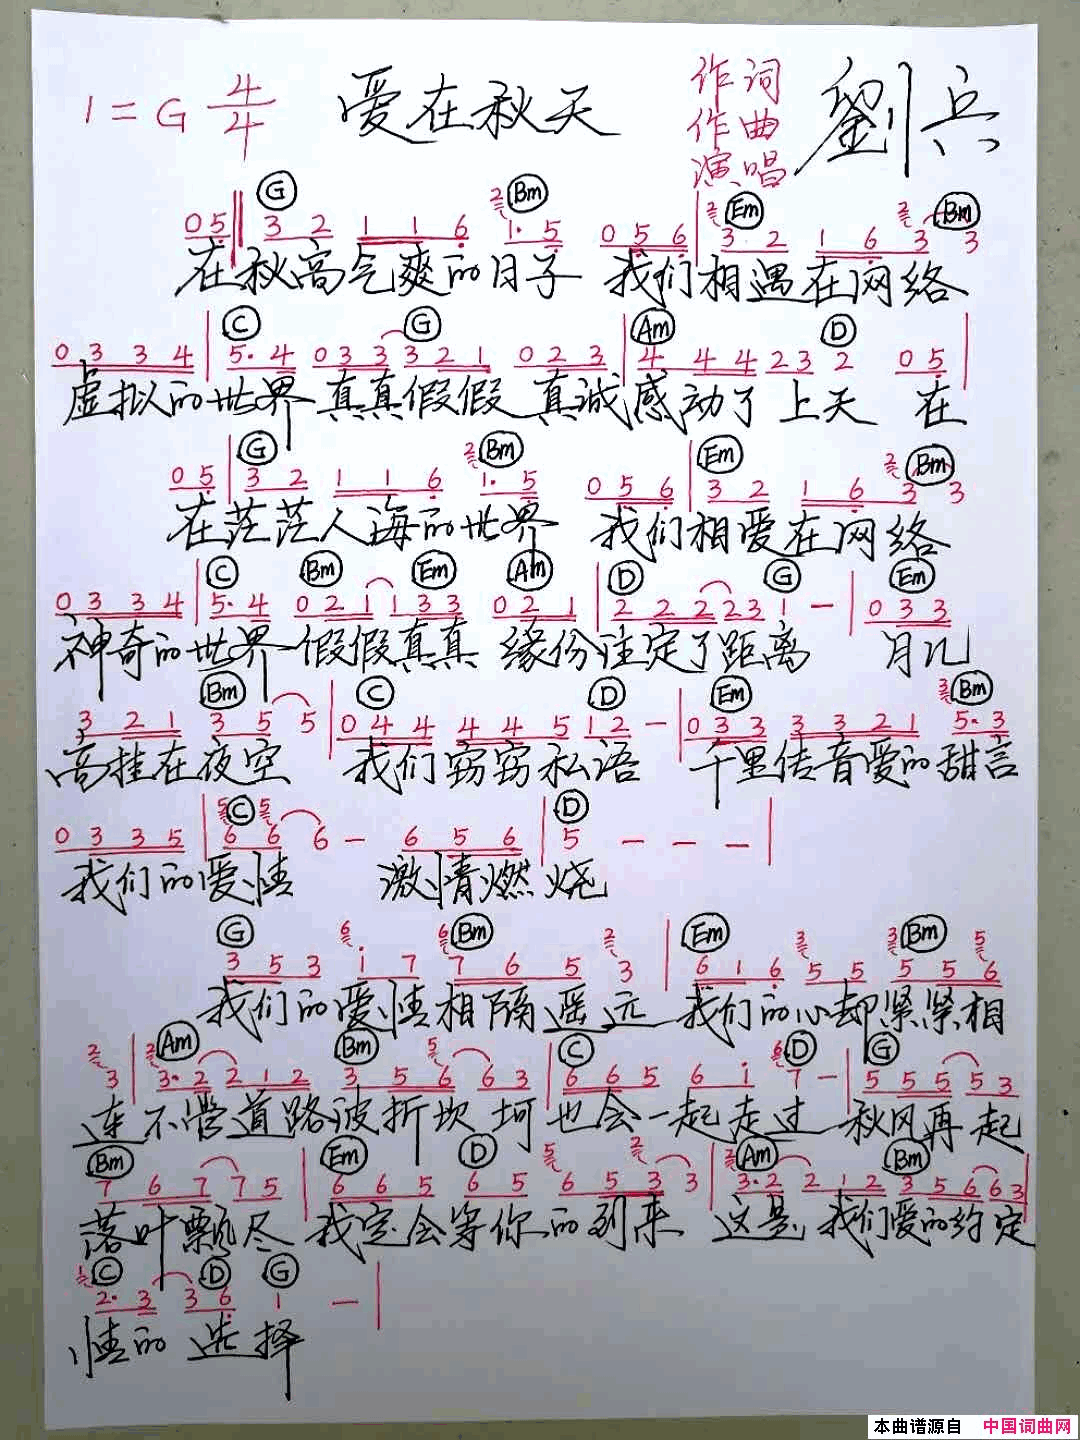 1=G 4/4 爱在秋天 作词 作曲 演唱 劉兵
G Bm Em Bm
05 32 116 1·5 056 32 163 3
在秋高气爽的日子 我们相遇在网络
C G Am D
0334 5·4 033321 023 444232 05
虚拟的世界真真假假 真诚感动了上天 在
G Bm Em Bm
05 32 116 1·5 056 32 163 3
在茫茫人海的世界 我们相爱在网络
C Bm Em Am D G Em
0334 5·4 021133 021 222223 1 — 033
神奇的世界假假真真 缘份注定了距离 月儿
Bm C D Em Bm
321 35 5 044 44512 — 033 3321 5·3
高挂在夜空 我们窃窃私语 千里传音爱的甜言
C D
0335 66 6 — 656 5 — — —
我们的爱情 激情燃烧
G Bm Em Bm
353 17 765 3 616 55 556
我们的爱情相隔遥远 我们的心却紧紧相
Am Bm C D G
3 3·2212 356 63 665 61 7 — 555 53
连不管道路波折坎坷也会一起走过 秋风再起
Bm Em D Am Bm
767 75 665 65 653 3 3·2 212 356 63
落叶飘尽 我定会等你的到来 这是我们爱的约定
C D G
2·3 36 1 —
情的选择
本曲谱源自 中国词曲网